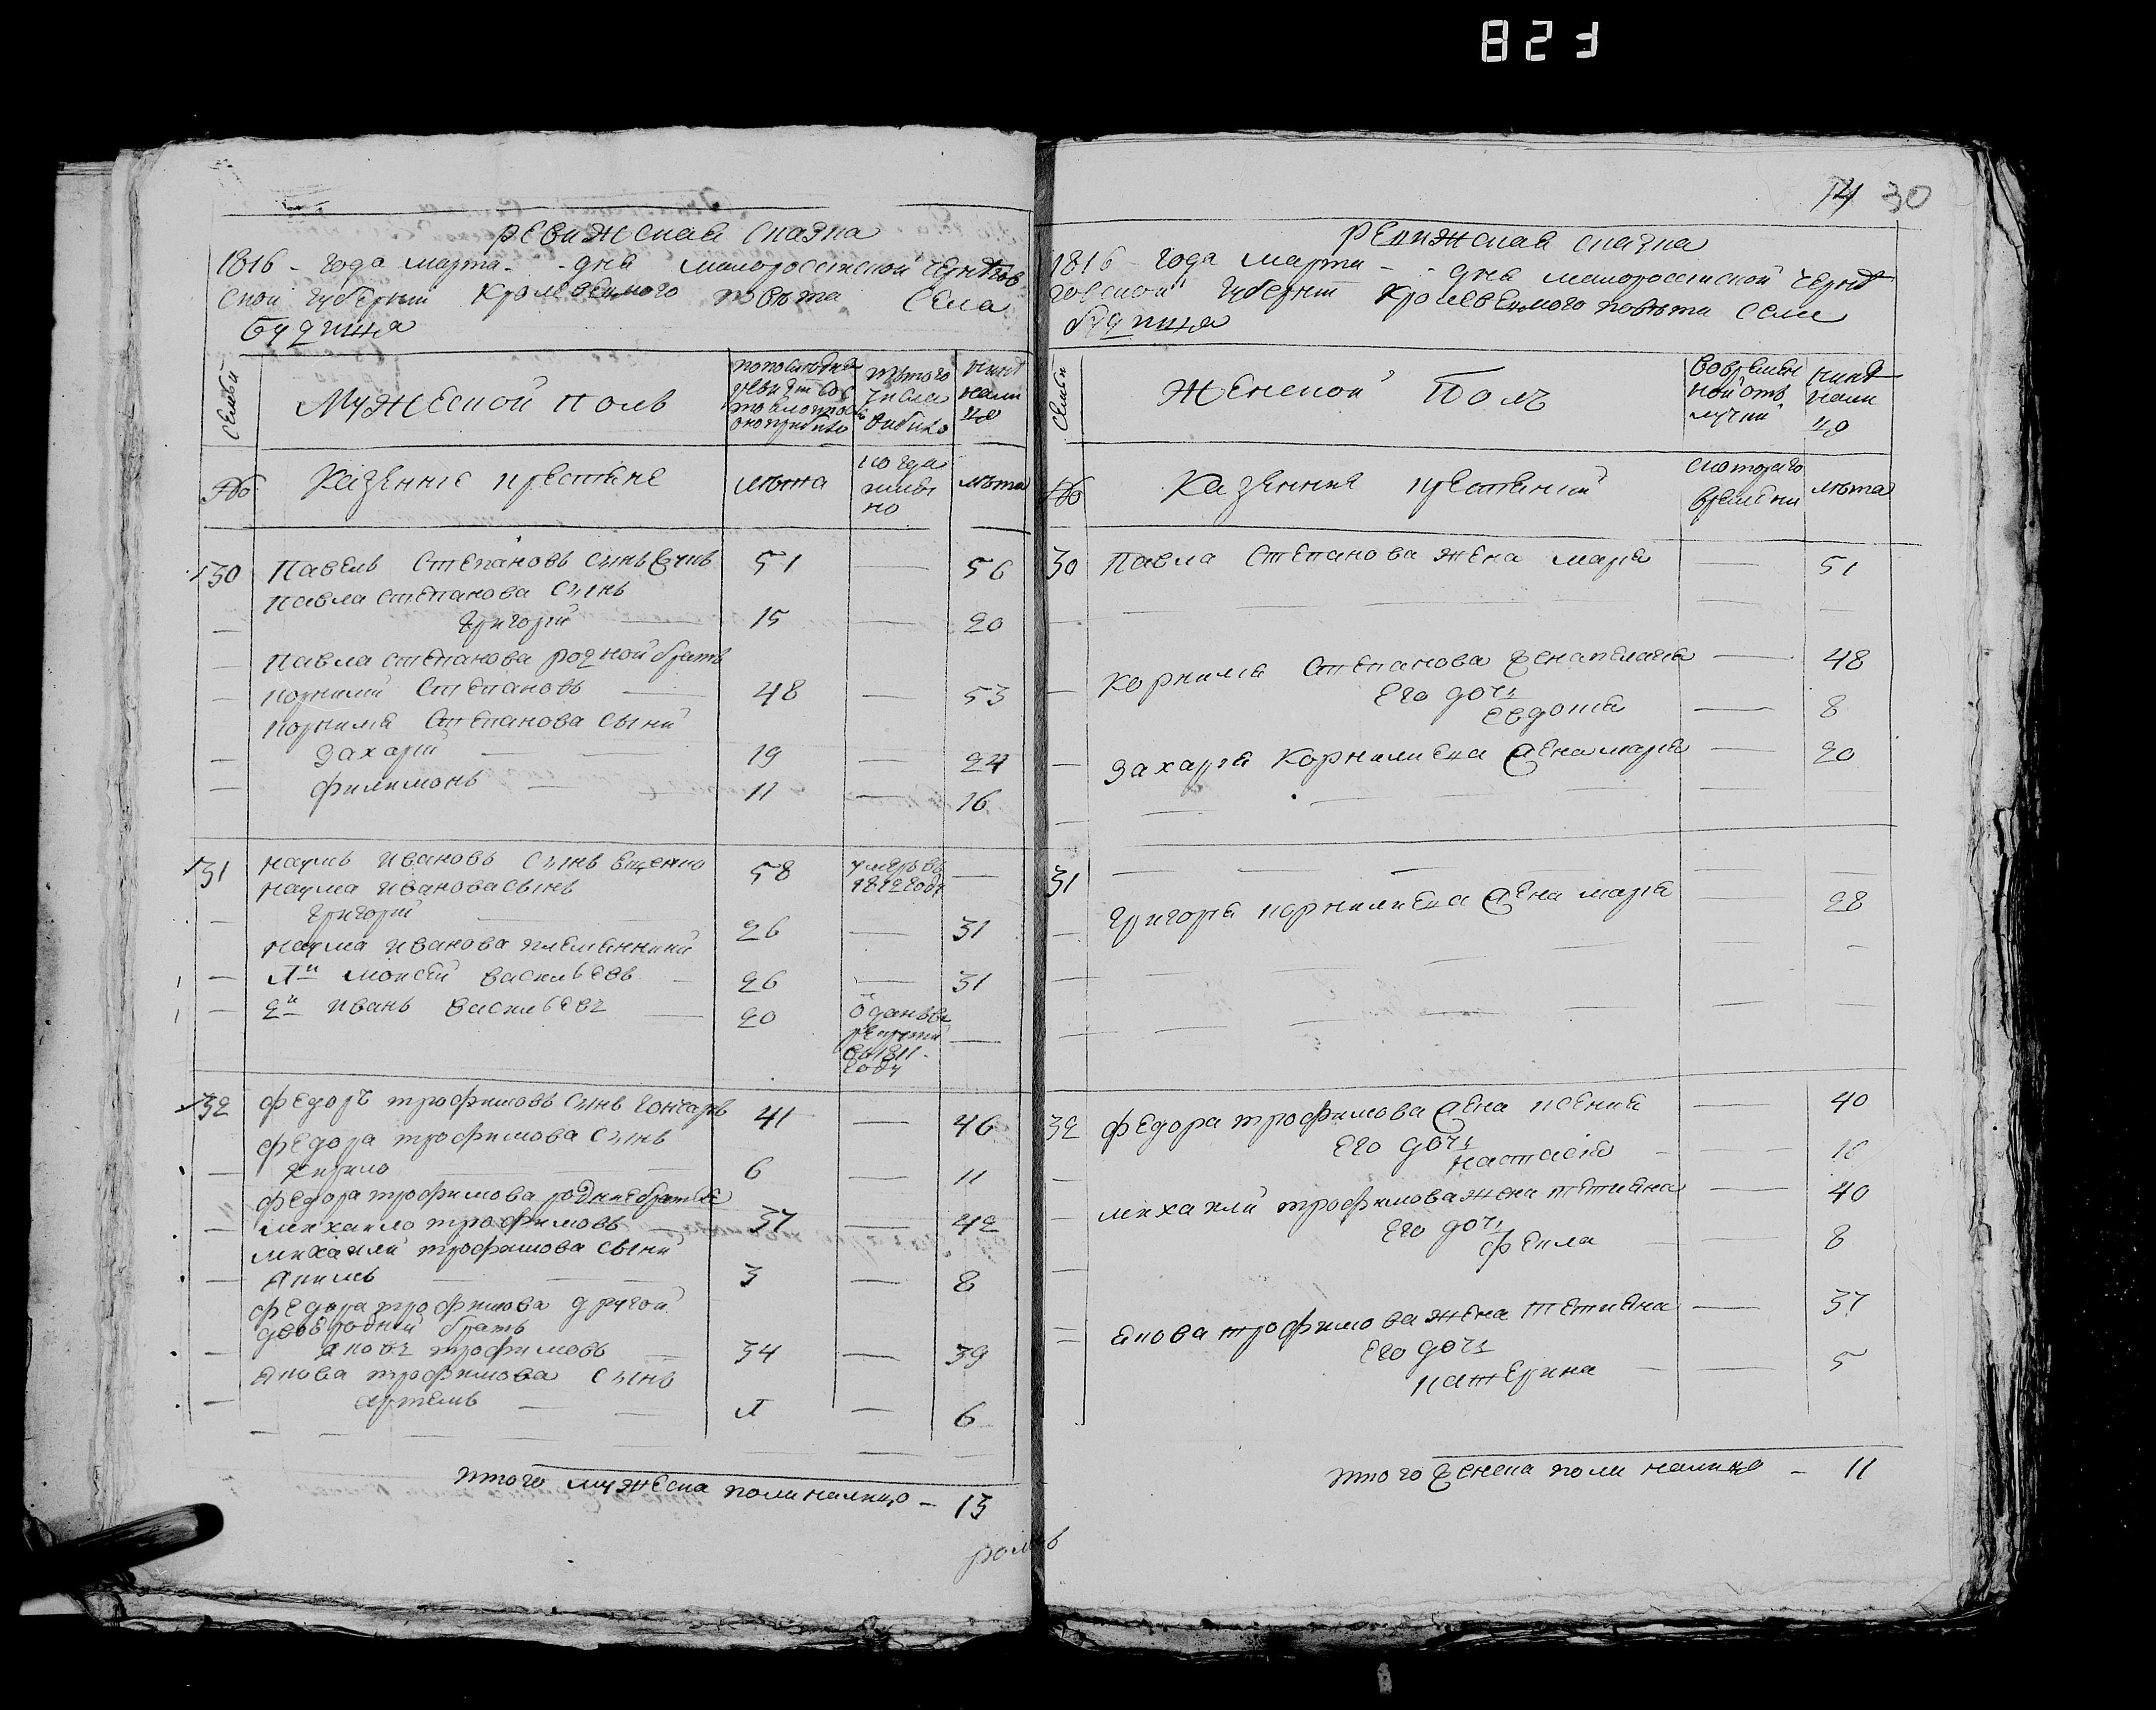 823
ревижская сказка
1816 - года марта - - дня малороссийской Чернигов
ской губернии Кролевецкого повета села
Будища
семьи
Мужеской полъ
по последней ревизии состояло и после оной прибыло
из того числа выбыло
ныне налицо
№
Казенние крестяне
лета
когда имянно
лета
130 Павелъ Степановъ сынъ 51 — 56
Павла Степанова сынъ
— Григорий — 15 — 20
— Павла Степанова родной братъ
— Корнилий Степановъ — 48 — 53
Корнилия Степанова сыни
— Захарий — — 19 — 24
— Филимонъ — 11 — 16
131 Наумъ Ивановъ сынъ Ещенко 58 умеръ въ 1812 году —
Наума Иванова сынъ
— Григорий — 26 — 31
Наума Иванова племянники
— 1й Моисей Васильевъ — 26 — 31
— 2й Иванъ Васильевъ — 20 отданъ в рекруты въ 1811 году —
132 Федоръ Трофимовъ сынъ Гончаръ 41 — 46
Федора Трофимова сынъ
— Кирило — — 6 — 11
Федора Трофимова родние братья
— Михайло Трофимовъ — 37 — 42
Михайли Трофимова сыни
— Якимъ — — — 3 — 8
Федора Трофимова другой
двоеродний братъ
— Яковъ Трофимовъ — 34 — 39
Якова Трофимова сынъ
— Артемъ — — 1 — 6
итого мужеска пола налицо - 13
14 30
ревижская сказка
1816 - года марта - - дня малороссийской Черни
говской губернии Кролевецкого повета села
Будища
семьи
Женской полъ
во временной отлучки
ныне налицо
№
Казенние крестяний
с которого времени
лета
30 Павла Степанова жена Мария — 51
Корнилия Степанова жена Пелагия — 48
Его дочь
Евдокия — 8
— Захария Корниливца жена Мария — 20
31
Григория Корниливца жена Мария — 28
32 Федора Трофимова жена Ксения — 40
Его дочь
Настасия — — 16
— Михайли Трофимова жена Тетияна — 40
Его дочь
Фекла — 8
Якова Трофимова жена Тетияна — 37
Его дочь
Катерина — — 5
итого женска пола налицо - 11